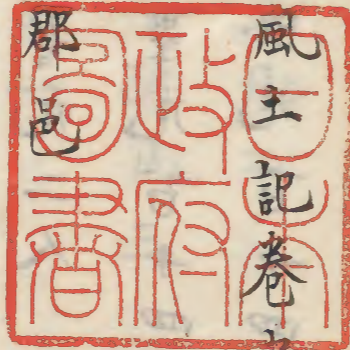 風土記卷
郡邑
日本
政府
圖書